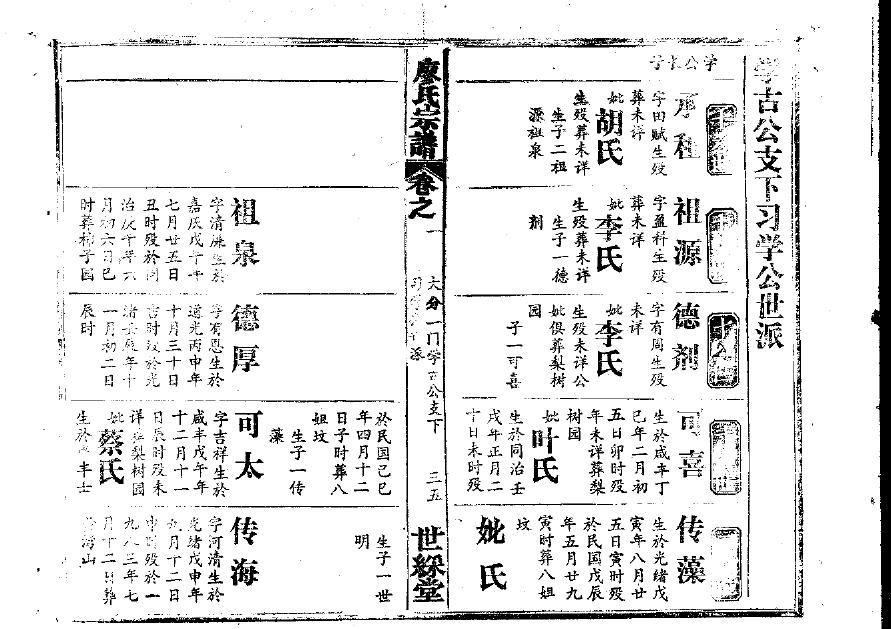 学古公支下习学公世派
承祖
字田赋生殁
葬未详
妣胡氏
生殁葬未详
生子二祖
源祖泉
祖源
字盈科生殁
葬未详
妣李氏
生殁葬未详
生子一德
剂
德剂
字有周生殁
未详
妣李氏
生殁未详公
妣俱葬梨树
园
子一可喜
可喜
生於咸丰丁
巳年二月初
五日卯时殁
年未详葬梨
树园
妣叶氏
生於同治壬
戌年正月二
十日未时殁
传藻
生於光绪戊
寅年八月廿
五日寅时殁
於民国戊辰
年五月廿九
寅时葬八姐
坟
妣氏
廖氏宗谱
卷之一
大分一门学古公支下
三五
世綵堂
於民国己巳
年四月十二
日子时葬八
姐坟
生子一传
藻
生子一世
明
祖泉
字清廉生於
嘉庆戊午年
七月廿五日
丑时殁於同
治庚午年六
月初六日巳
时葬柿子园
德厚
字有恩生於
道光丙申年
十月三十日
吉时殁於光
绪壬辰年十
一月初二日
辰时
可太
字吉祥生於
咸丰戊午年
十二月十一
日辰时殁未
详葬梨树园
妣蔡氏
传海
字河清生於
光绪戊申年
九月十二日
申时殁於一
九八三年七
月十二日葬